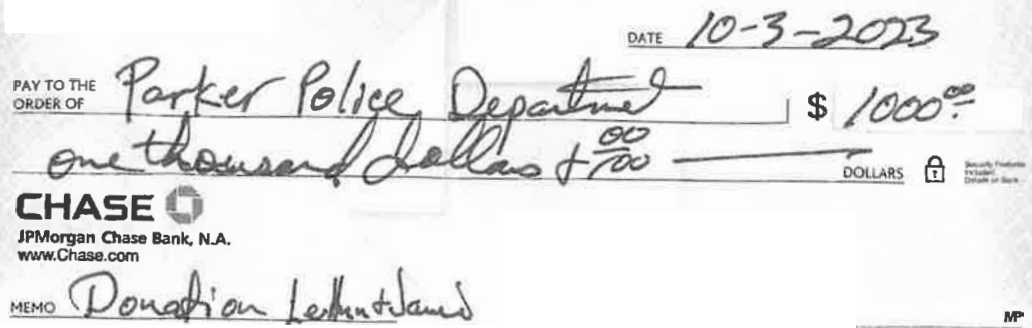 DATE 10-3-2023
PAY TO THE ORDER OF Parker Police Department $ 1000.00
one thousand dollars + 00/100 DOLLARS
CHASE
JPMorgan Chase Bank, N.A.
www.Chase.com
MEMO Donation
MP